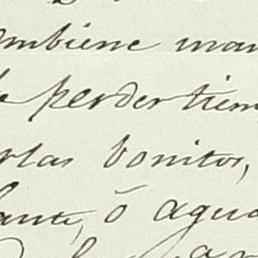 ambiene man
de perder tiem
rlas bonitos,
lante, ó agua